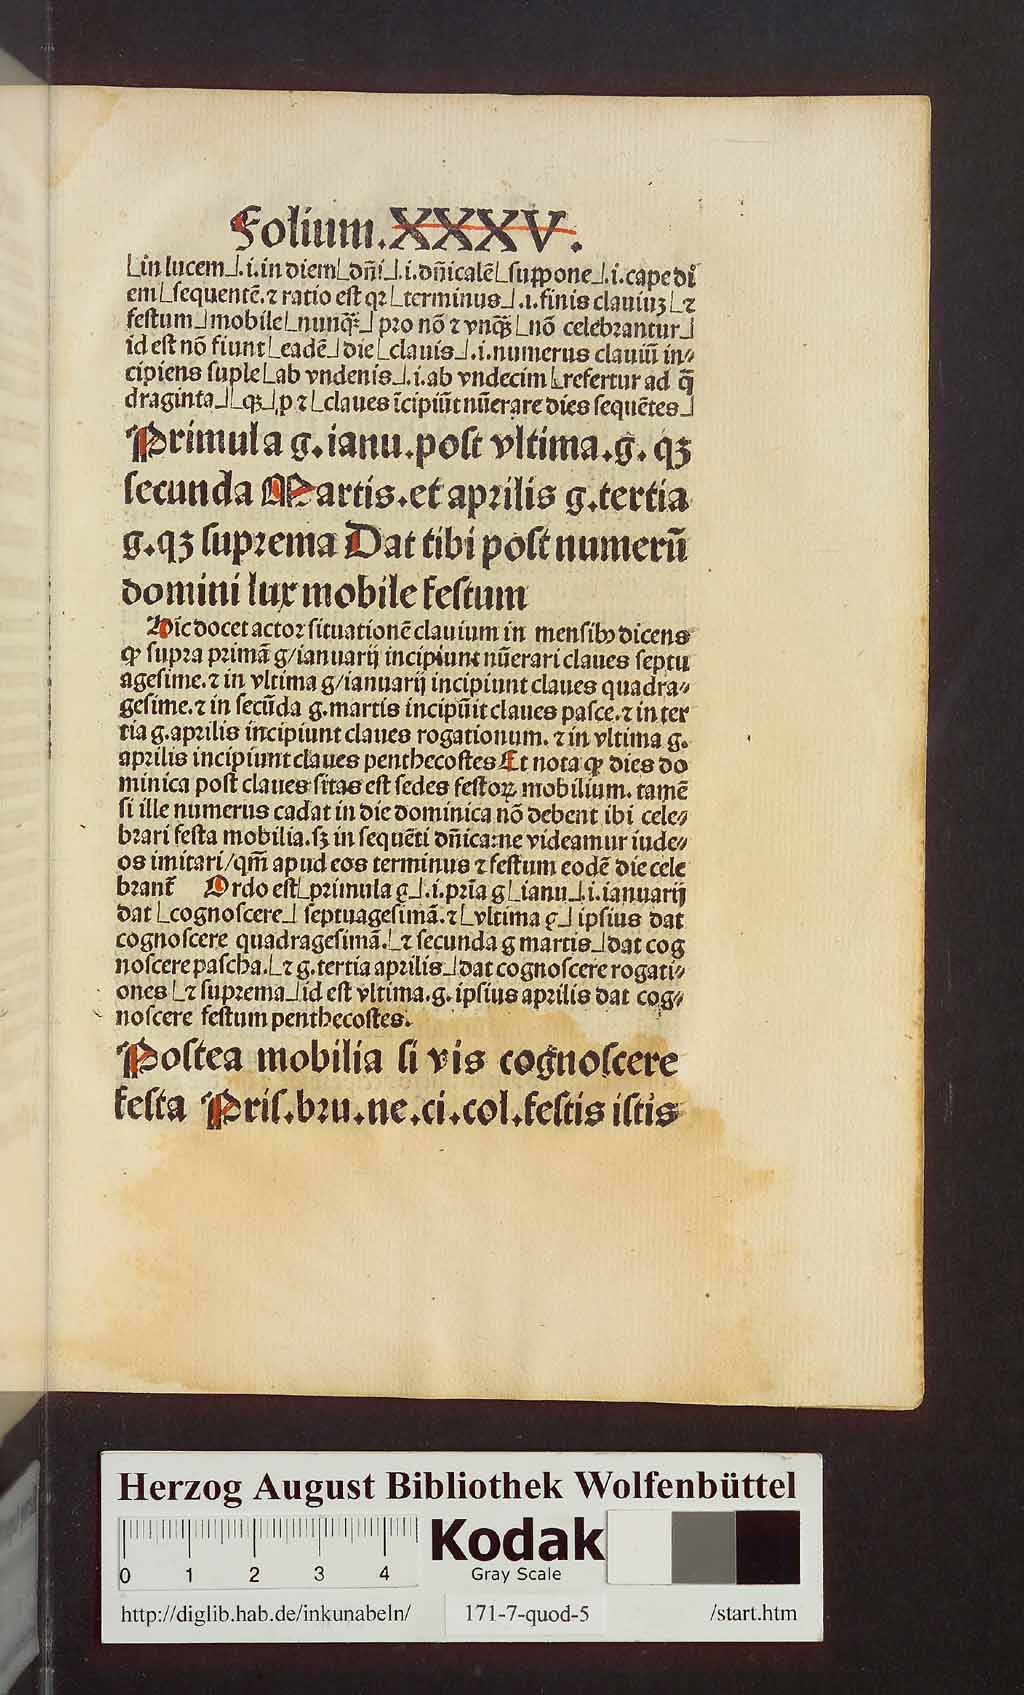 Folium.XXXV.
⌊in lucem⌋.i.in diem⌊dn̄i⌋.i.dn̄icalē⌊suppone⌋.i.cape di
em⌊sequentē.⁊ ratio est qꝛ⌊terminus⌋.i.finis clauiuꝫ⌊⁊
festum⌋mobile⌊nunqꝫ⌋ pro nō ⁊ vnqꝫ⌊nō celebrantur⌋
id est nō fiunt⌊eadē⌋die⌊clauis⌋.i.numerus clauiū in⸗
cipiens suple⌊ab vndenis⌋.i.ab vndecim⌊refertur ad q̄
draginta⌋⌊qꝫ⌋.p ⁊⌊claues īcipiūt nūerare dies sequētes⌋
Primula g.ianu.post vltima.g.qꝫ
secunda Martis.et aprilis g.tertia
g.qꝫ suprema Dat tibi post numerū
domini lux mobile festum
Hic docet actor situationē clauium in mensibꝰ dicens
ꝙ supra primā g/ianuarij incipiunt nūerari claues septu
agesime.⁊ in vltima g/ianuarij incipiunt claues quadra⸗
gesime.⁊ in secūda g.martis incipiūt claues pasce.⁊ in ter
tia g.aprilis incipiunt claues rogationum.⁊ in vltima g.
aprilis incipiunt claues penthecostes Et nota ꝙ dies do
minica post claues sitas est sedes festoꝝ mobilium. tamē
si ille numerus cadat in die dominica nō debent ibi cele⸗
brari festa mobilia.sꝫ in sequēti dn̄ica:ne videamur iude⸗
os imitari/qm̄ apud eos terminus ⁊ festum eodē die cele
branť Ordo est⌊primula g⌋.i.pria g⌊ianu⌋.i.ianuarij
dat⌊cognoscere⌋ septuagesimā.⁊⌊vltima g⌋ ipsius dat
cognoscere quadragesimā.⌊⁊ secunda g martis⌋dat cog
noscere pascha.⌊⁊ g.tertia aprilis⌋dat cognoscere rogati⸗
ones⌊⁊ suprema⌋id est vltima.g.ipsius aprilis dat cog⸗
noscere festum penthecostes.
Postea mobilia si vis cognoscere
festa Pris.bru.ne.ci.col.festis istis
Herzog August Bibliothek Wolfenbüttel
0 1 2 3 4
Kodak
Gray Scale
http://diglib.hab.de/inkunabeln/ 171-7-quod-5 /start.htm